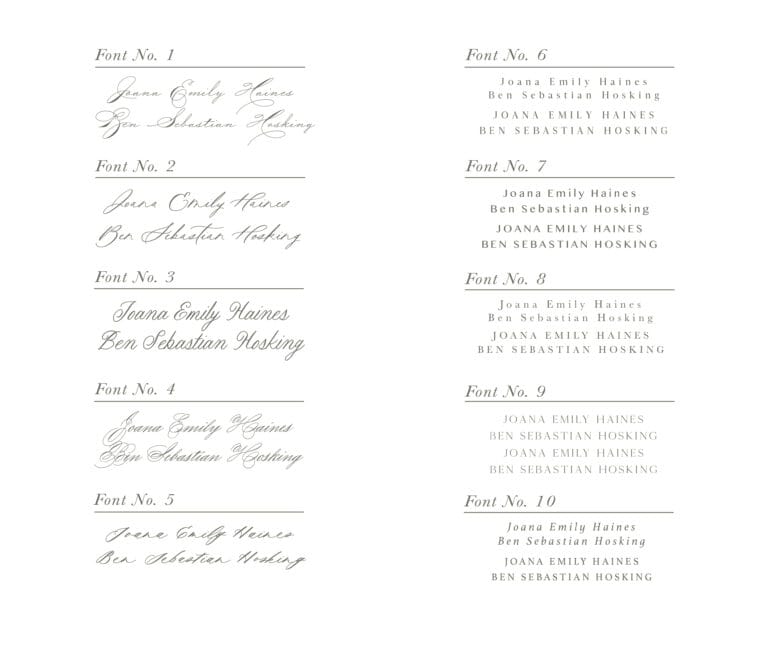 Font No. 1
Joana Emily Haines
Ben Sebastian Hosking
Font No. 2
Joana Emily Haines
Ben Sebastian Hosking
Font No. 3
Joana Emily Haines
Ben Sebastian Hosking
Font No. 4
Joana Emily Haines
Ben Sebastian Hosking
Font No. 5
Joana Emily Haines
Ben Sebastian Hosking
Font No. 6
Joana Emily Haines
Ben Sebastian Hosking
JOANA EMILY HAINES
BEN SEBASTIAN HOSKING
Font No. 7
Joana Emily Haines
Ben Sebastian Hosking
JOANA EMILY HAINES
BEN SEBASTIAN HOSKING
Font No. 8
Joana Emily Haines
Ben Sebastian Hosking
JOANA EMILY HAINES
BEN SEBASTIAN HOSKING
Font No. 9
JOANA EMILY HAINES
BEN SEBASTIAN HOSKING
JOANA EMILY HAINES
BEN SEBASTIAN HOSKING
Font No. 10
Joana Emily Haines
Ben Sebastian Hosking
JOANA EMILY HAINES
BEN SEBASTIAN HOSKING